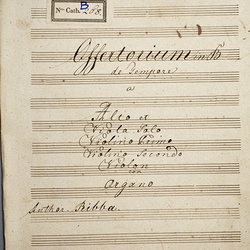 B
Nro Cath. 208.
Offertorium in B
de Tempore
a
Alto et
Viola Solo
Violino Primo
Violino Secondo
Violon
con
Organo
Author. Ribba.